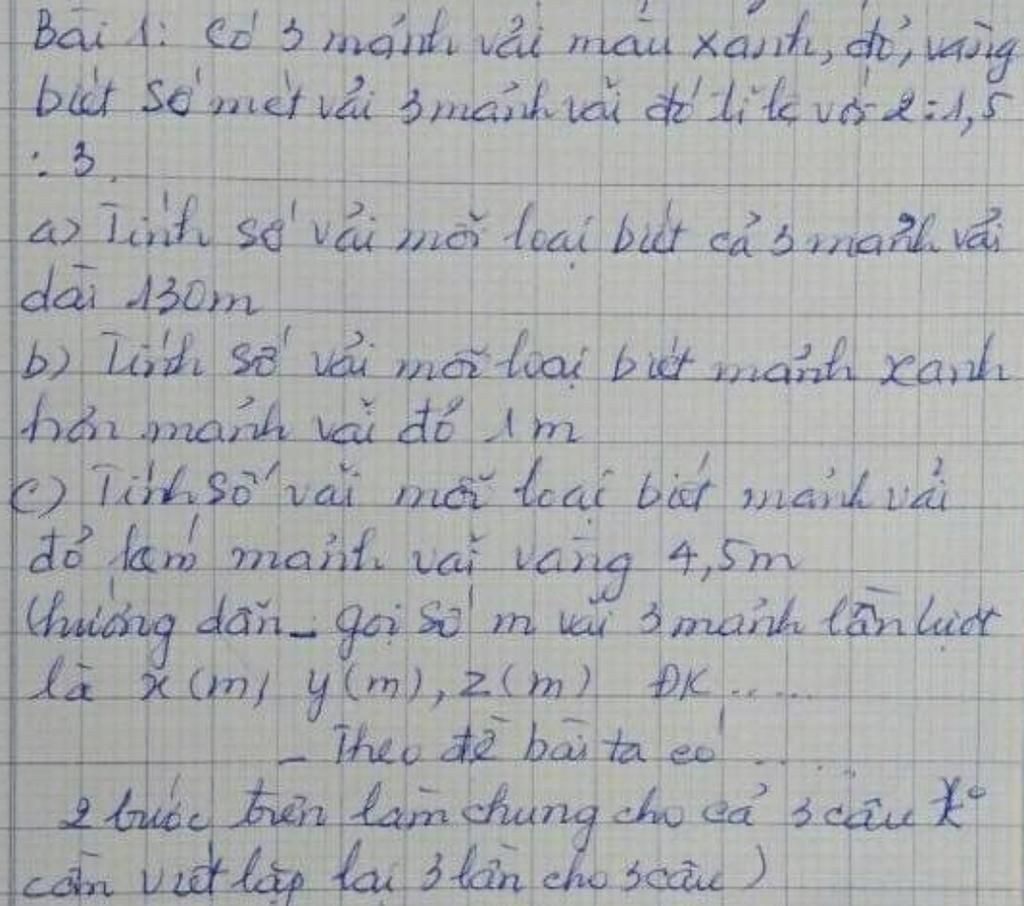 Bài 1: Có 3 mảnh vải màu xanh, đỏ, vàng
biết số mét vải 3 mảnh vải đó tỉ lệ với 2:1,5
: 3.
a) Tính số vải mỗi loại biết cả 3 mảnh vải
dài 130m
b) Tính số vải mỗi loại biết mảnh xanh
hơn mảnh vải đỏ 1m
c) Tính số vải mỗi loại biết mảnh vải
đỏ kém mảnh vải vàng 4,5m
(hướng dẫn - gọi số m vải 3 mảnh lần lượt
là x(m) y(m), z(m) ĐK .....
- Theo đề bài ta có .....
2 bước trên làm chung cho cả 3 câu k°
cần viết lặp lại 3 lần cho 3 câu )